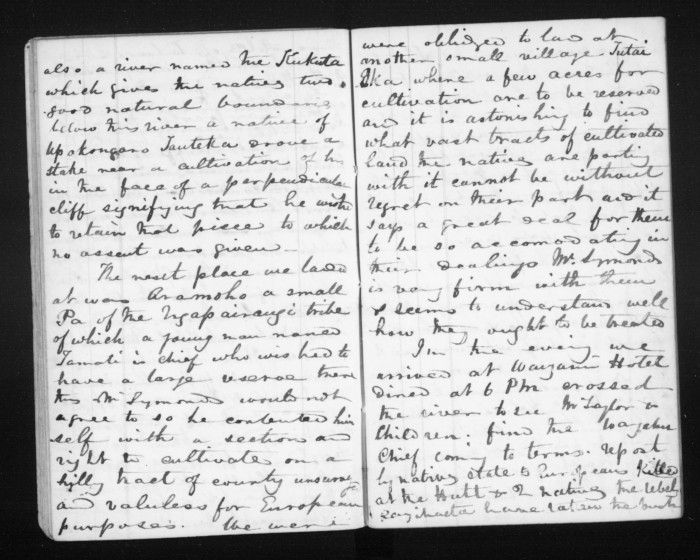 also a river named the Kukuta
which gives the natives two
good natural boundaries
below this river a native of
Upokongaro Tauteka drove a
stake near a cultivation of his
in the face of a perpendicular
cliff signifying that he wished
to retain that piece to which
no assent was given
The next place we landed
at was Aramoho a small
Pa of the Ngapairangi tribe
of which a young man named
Tamati is chief who wished to
have a large reserve there
this Mr Symonds would not
agree to so he contented him
self with a section and
right to cultivate on a
hilly tract of country
and valuless for European
purposes. We were
were oblidged to land at
another small village Tutai
Eka where a few acres for
cultivation are to be reserved
and it is astonishing to find
what vast tracts of cultivated
land the natives are parting
with it cannot be without
regret on their part and it
says a great deal for them
to be so accomodating in
their dealings Mr Symonds
is very firm with them
& seems to understand well
how they ought to be treated
In the evening we
arrived at Hotel
dined at 6 PM crossed
the river to see Mr Taylor &
Children; find the
Chief coming to terms. report
by natives state 8 Europeans Killed
at the Hutt & 2 natives the rebels
have taken the